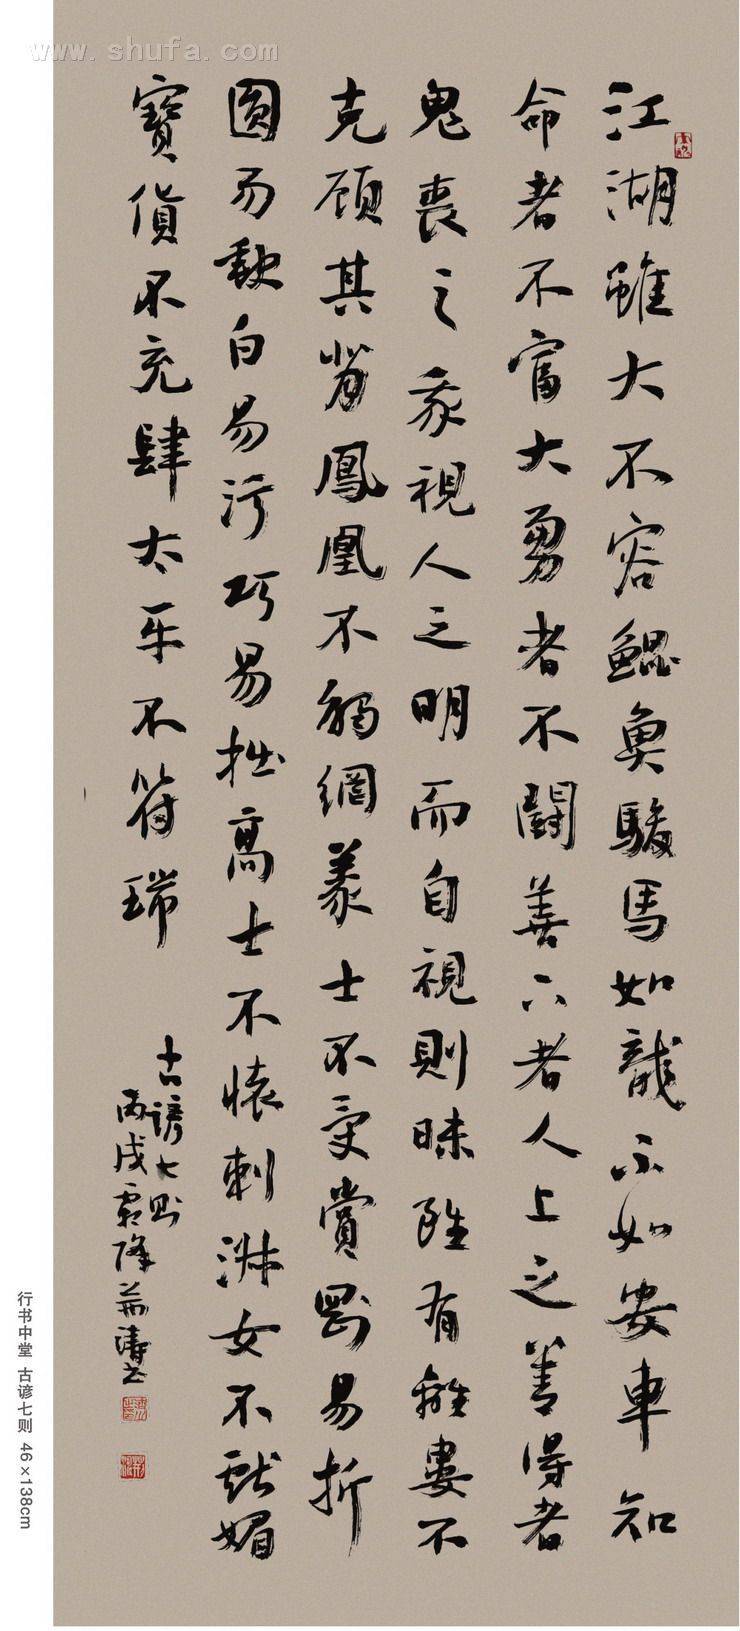 www.shufa.com
江湖雖大不容鯤魚駿馬如龍不如安車知
命者不富大勇者不鬪善下者人上之善得者
鬼喪之我視人之明而自視則昧雖有離婁不
克顾其背鳳凰不觸網義士不受賞剛易折
圓易欹白易污巧易拙高士不懷刺淑女不獻媚
寶貨不充肆太平不符瑞
古諺七則
丙戌霜降濤書
行书中堂 古谚七则 46×138cm